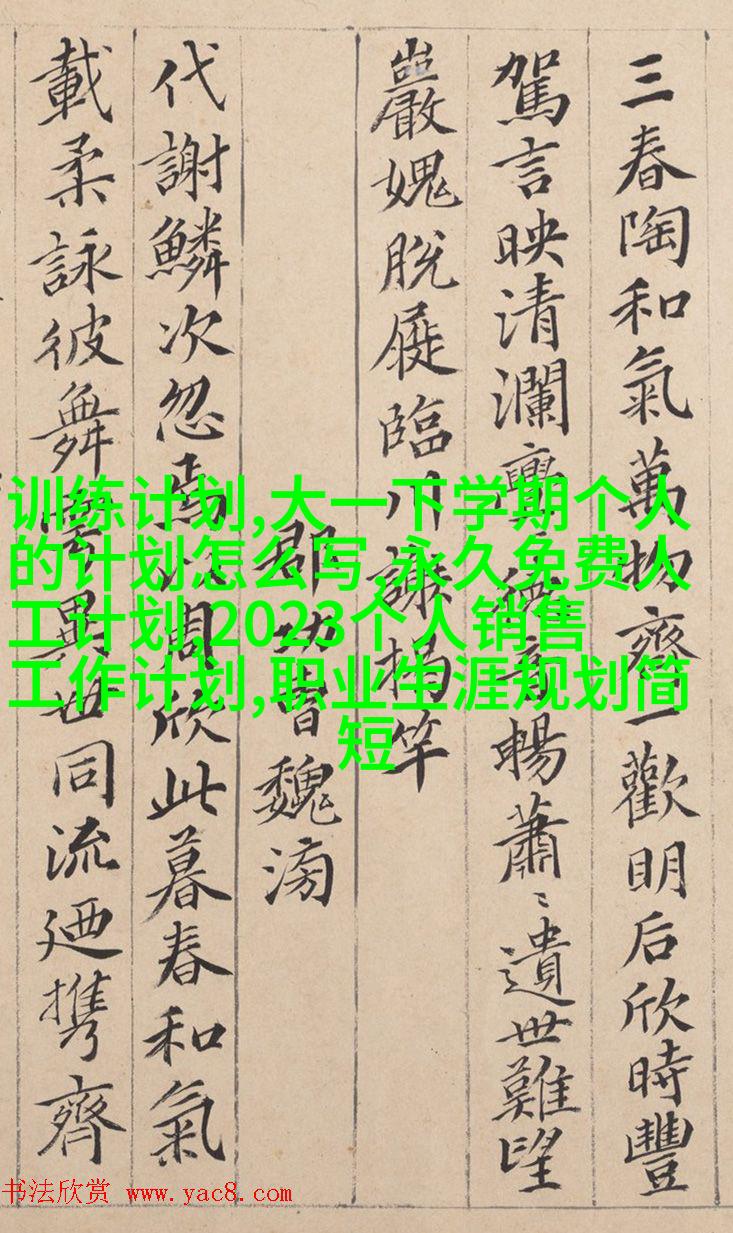 三春陶和氣萬物齊一歡明后欣時豐
駕言映清瀾亹〻德音暢蕭〻遺世難望
巖愧脫屣臨川謝揭竿
郡功曹魏滂
代謝鱗次忽焉以周欣此暮春和氣
載柔詠彼舞雩異世同流廼携齊
训练计划,大一下学期个人
的计划怎么写,永久免费人
工计划,2023个人销售
工作计划,职业生涯规划简
短
书法欣赏 www.yac8.com